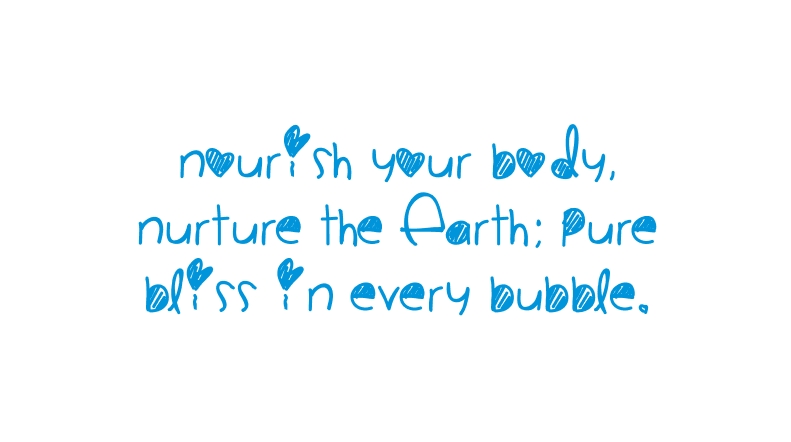 nourish your body,
nurture the Earth; Pure
bliss in every bubble.